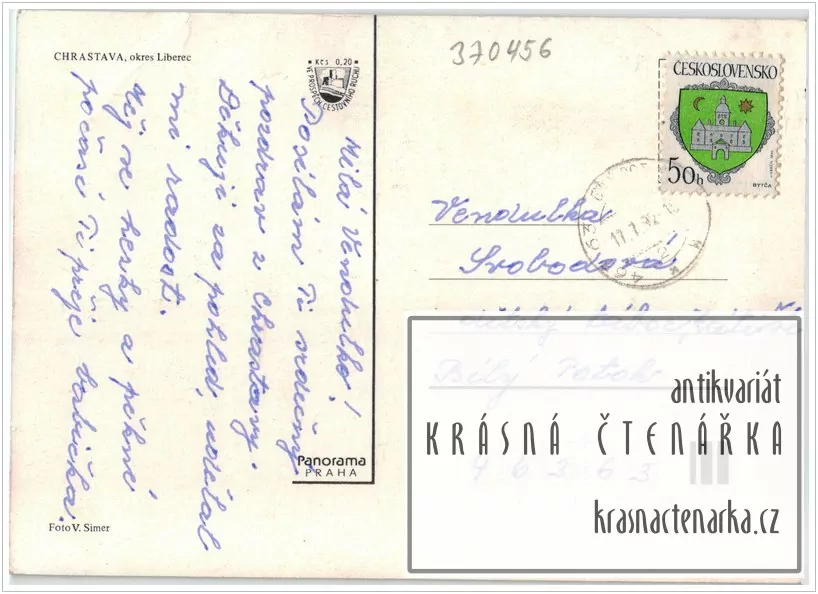 CHRASTAVA, okres Liberec
Kčs 0,20
VE PROSPĚCH CESTOVNÍHO RUCHU
Milá Vendulko!
Posílám Ti srdečný
pozdrav z Chrastavy.
Děkuji za pohled, udělal
mi radost.
Měj se hezky a pěkné
počasí Ti přeje babička.
Panorama
PRAHA
Foto V. Simer
370456
ČESKOSLOVENSKO
50h
BYTČA
17.7.92
463 63
Vendulka
Svobodová
dětský tábor
Bílý Potok
46363
antikvariát
KRÁSNÁ ČTENÁŘKA
krasnactenarka.cz